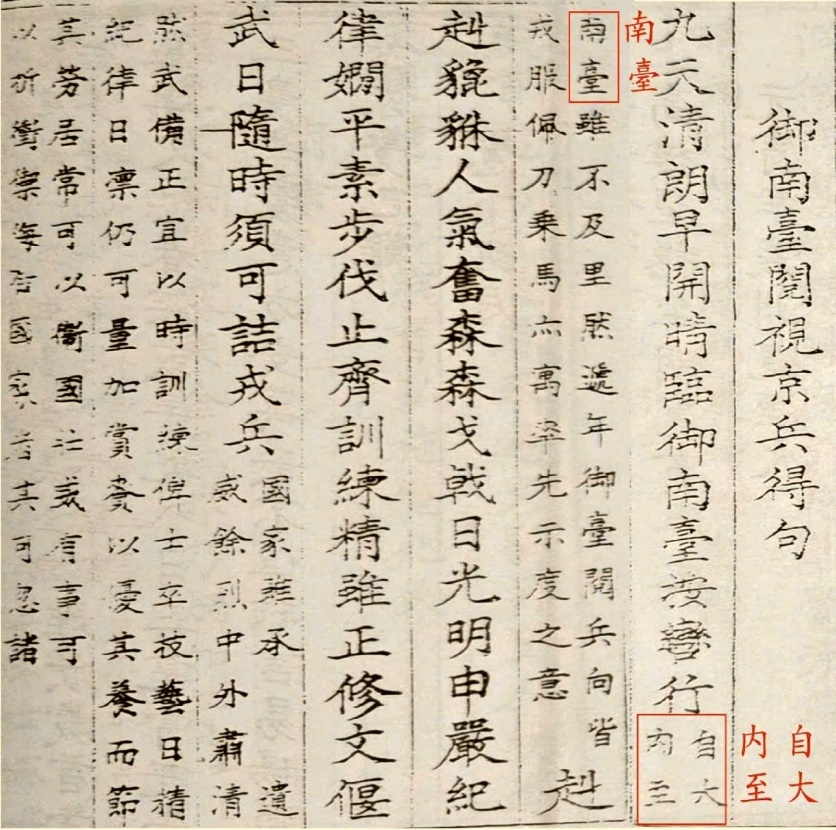 御南臺閱視京兵得句
九天清朗早開晴臨御南臺按轡行
自大
内至
自大
内至
南臺
南臺雖不及里然遞年御臺閱兵向皆
戎服佩刀乗馬亦寓率先示度之意
赳
赳貔貅人氣奮森森戈戟日光明申嚴紀
律嫻平素步伐止齊訓練精雖正修文偃
武日隨時須可詰戎兵
國家雖承遺
威餘烈中外肅清
然武備正宜以時訓練俾士卒技藝日精
紀律日凛仍可量加賞賚以優其養而節
其勞居常可以衛國壯威有事可
以折衝禦侮有國家者其可忽諸